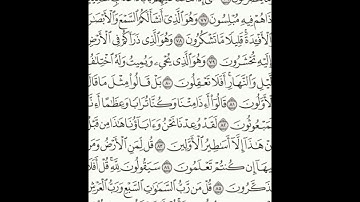 هُمْ فِيهِ مُبْلِسُونَ ٧٧ وَهُوَ ٱلَّذِىٓ أَنشَأَ لَكُمُ ٱلسَّمْعَ وَٱلْأَبْصَٰرَ
ٱلْأَفْـِٔدَةَ قَلِيلًا مَّا تَشْكُرُونَ ٧٨ وَهُوَ ٱلَّذِى ذَرَأَكُمْ فِى ٱلْأَرْضِ
إِلَيْهِ تُحْشَرُونَ ٧٩ وَهُوَ ٱلَّذِى يُحْىِۦ وَيُمِيتُ وَلَهُ ٱخْتِلَٰفُ
لَّيْلِ وَٱلنَّهَارِ أَفَلَا تَعْقِلُونَ ٨٠ بَلْ قَالُوا۟ مِثْلَ مَا قَا
ٱلْأَوَّلُونَ ٨١ قَالُوٓا۟ أَءِذَا مِتْنَا وَكُنَّا تُرَابًا وَعِظَٰمًا أَءِنَّ
مَبْعُوثُونَ ٨٢ لَقَدْ وُعِدْنَا نَحْنُ وَءَابَآؤُنَا هَٰذَا مِن قَ
إِنْ هَٰذَآ إِلَّآ أَسَٰطِيرُ ٱلْأَوَّلِينَ ٨٣ قُل لِّمَنِ ٱلْأَرْضُ وَمَ
يهَآ إِن كُنتُمْ تَعْلَمُونَ ٨٤ سَيَقُولُونَ لِلَّهِ قُلْ أَفَلَا
ذَكَّرُونَ ٨٥ قُلْ مَن رَّبُّ ٱلسَّمَٰوَٰتِ ٱلسَّبْعِ وَرَبُّ ٱلْعَرْشِ